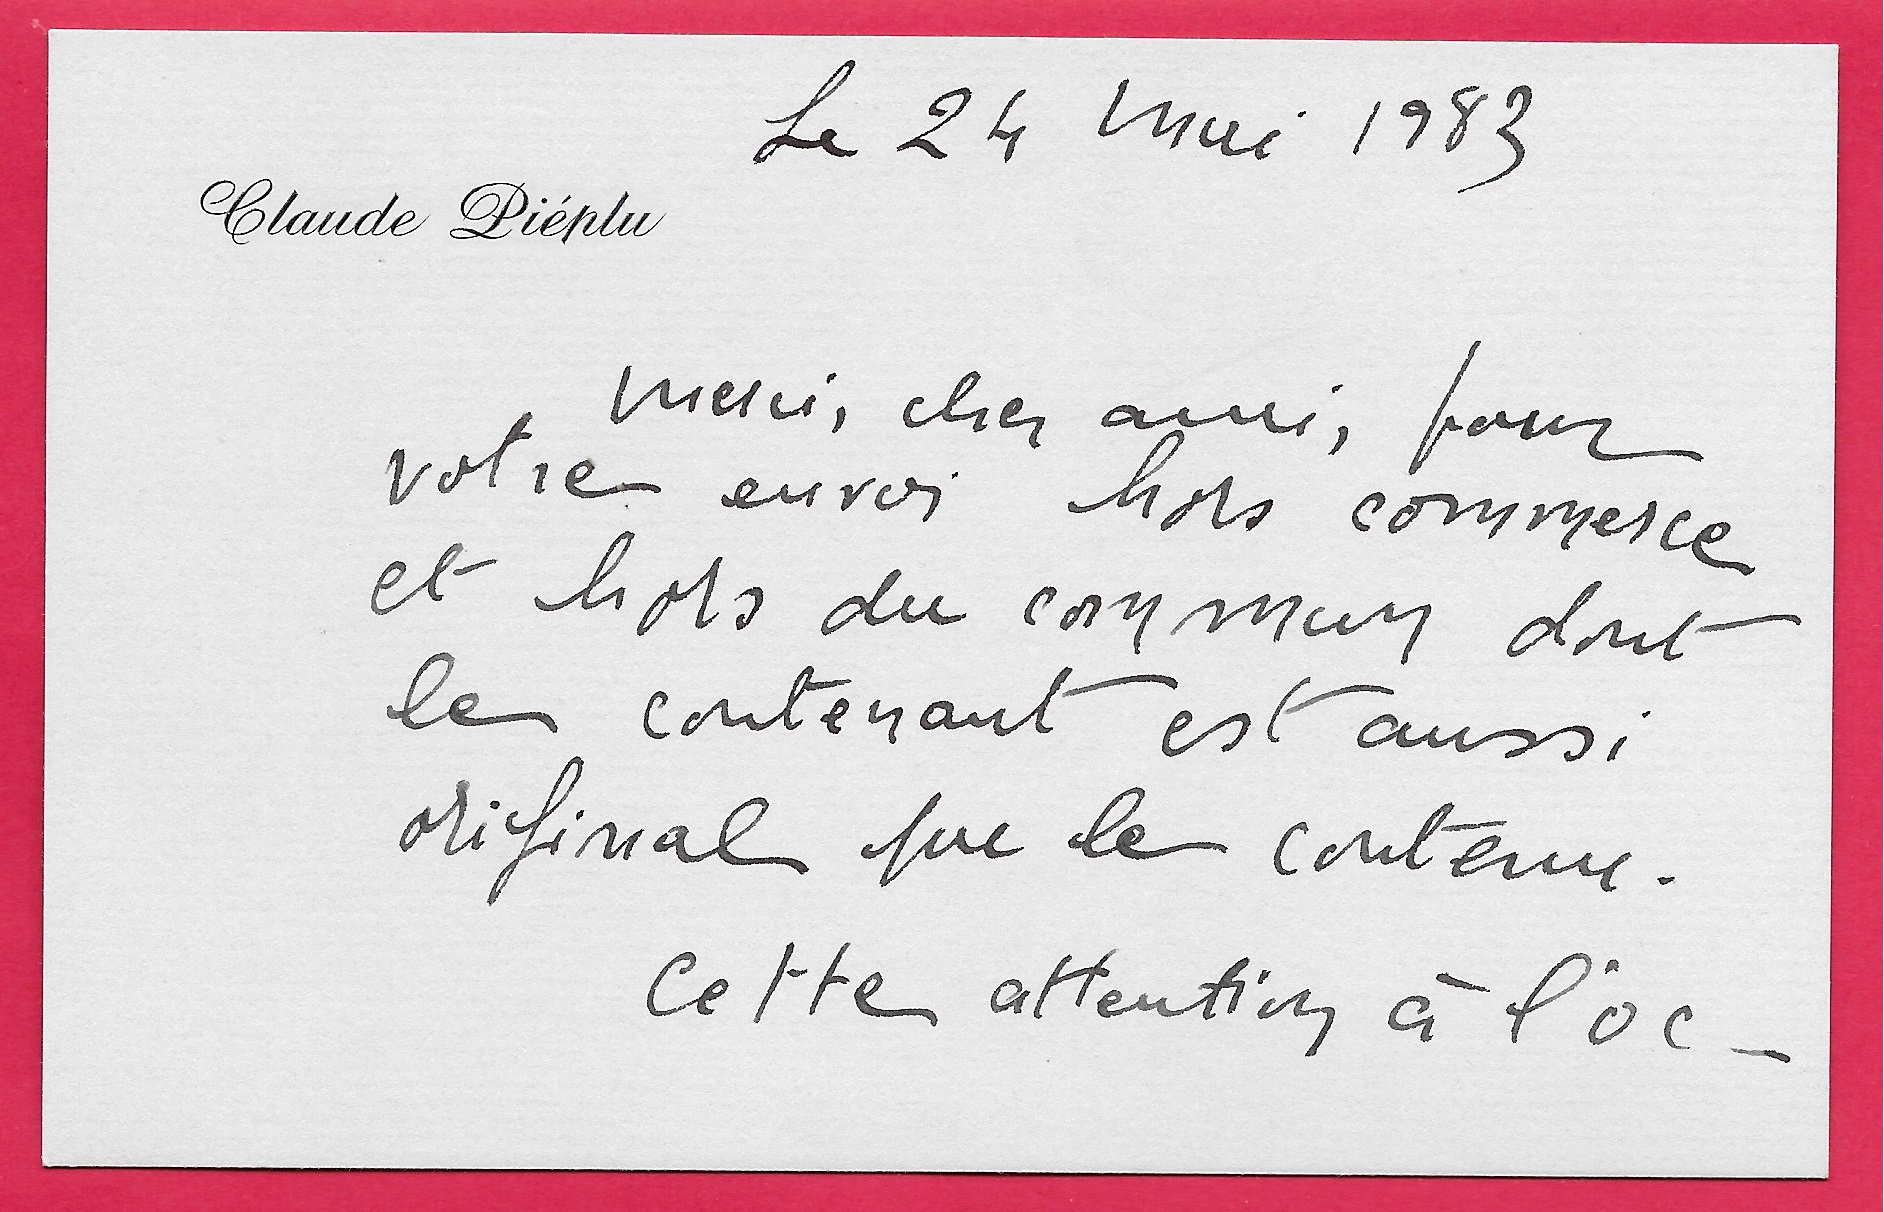 Le 24 mai 1983
Claude Piéplu
merci, cher ami, pour
votre envoi hors commerce
et hors du commun dont
le contenant est aussi
original que le contenu.
Cette attention à l'oc-